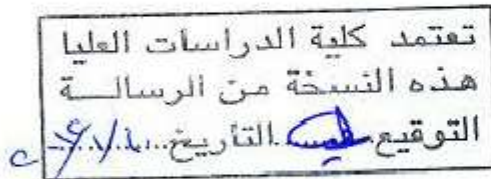 تعتمد كلية الدراسات العليا
هذه النسخة من الرسالـــة
التوقيع.......التاريخ......